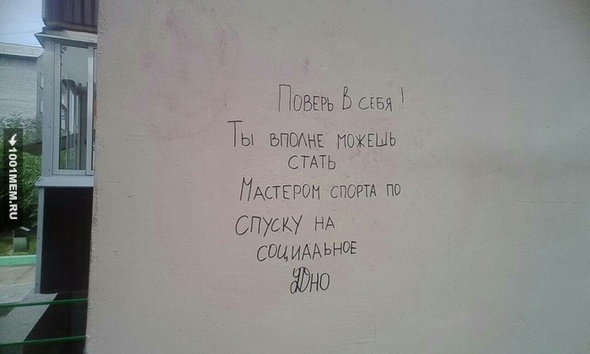 Поверь в себя!
Ты вполне можешь
стать
Мастером спорта по
спуску на
социальное
Дно
1001MEM.RU